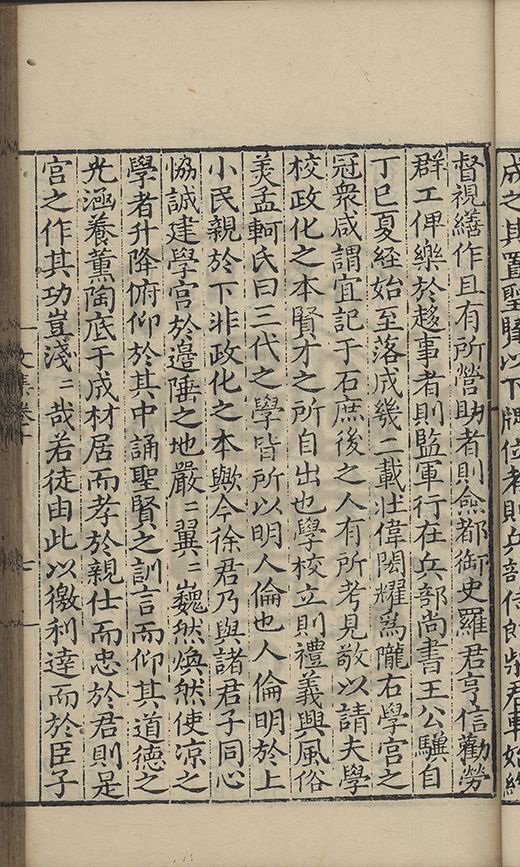 成之其置聖賢以下牌位者則兵部侍郎柴君車始終
督視繕作且有所營助者則僉都御史羅君亨信勸勞
群工俾樂於趍事者則監軍行在兵部尚書王公驥自
丁巳夏経始至落成幾二載壯偉閎耀為隴右學宫之
冠衆咸謂宜記于石庶後之人有所考見敬以請夫學
校政化之本賢才之所自出也學校立則禮義興風俗
美孟軻氏曰三代之學皆所以明人倫也人倫明於上
小民親於下非政化之本歟今徐君乃與諸君子同心
恊誠建學宫於邊陲之地嚴〻翼〻巍然煥然使凉之
學者升降俯仰於其中誦聖賢之訓言而仰其道德之
光涵養薰陶底于成材居而孝於親仕而忠於君則是
宫之作其功豈淺〻哉若徒由此以徼利達而於臣子
文集卷